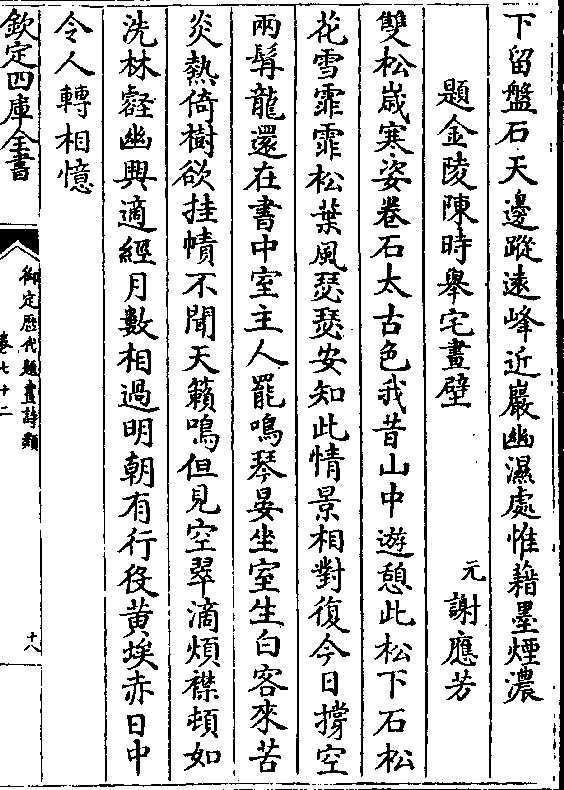 下留盤石天邊蹤遠峰近巖幽濕處惟藉墨煙濃
題金陵陳時舉宅畫壁
元 謝應芳
雙松歲寒姿卷石太古色我昔山中遊憩此松下石松
花雪霏霏松葉風瑟瑟安知此情景相對復今日撐空
兩髯龍還在書中室主人罷鳴琴晏坐室生白客來苦
炎熱倚樹欲挂幘不聞天籟鳴但見空翠滴煩襟頓如
洗林壑幽興適經月數相過明朝有行役黃埃赤日中
令人轉相憶
欽定四庫全書
御定歷代題畫詩類
卷七十二
十八